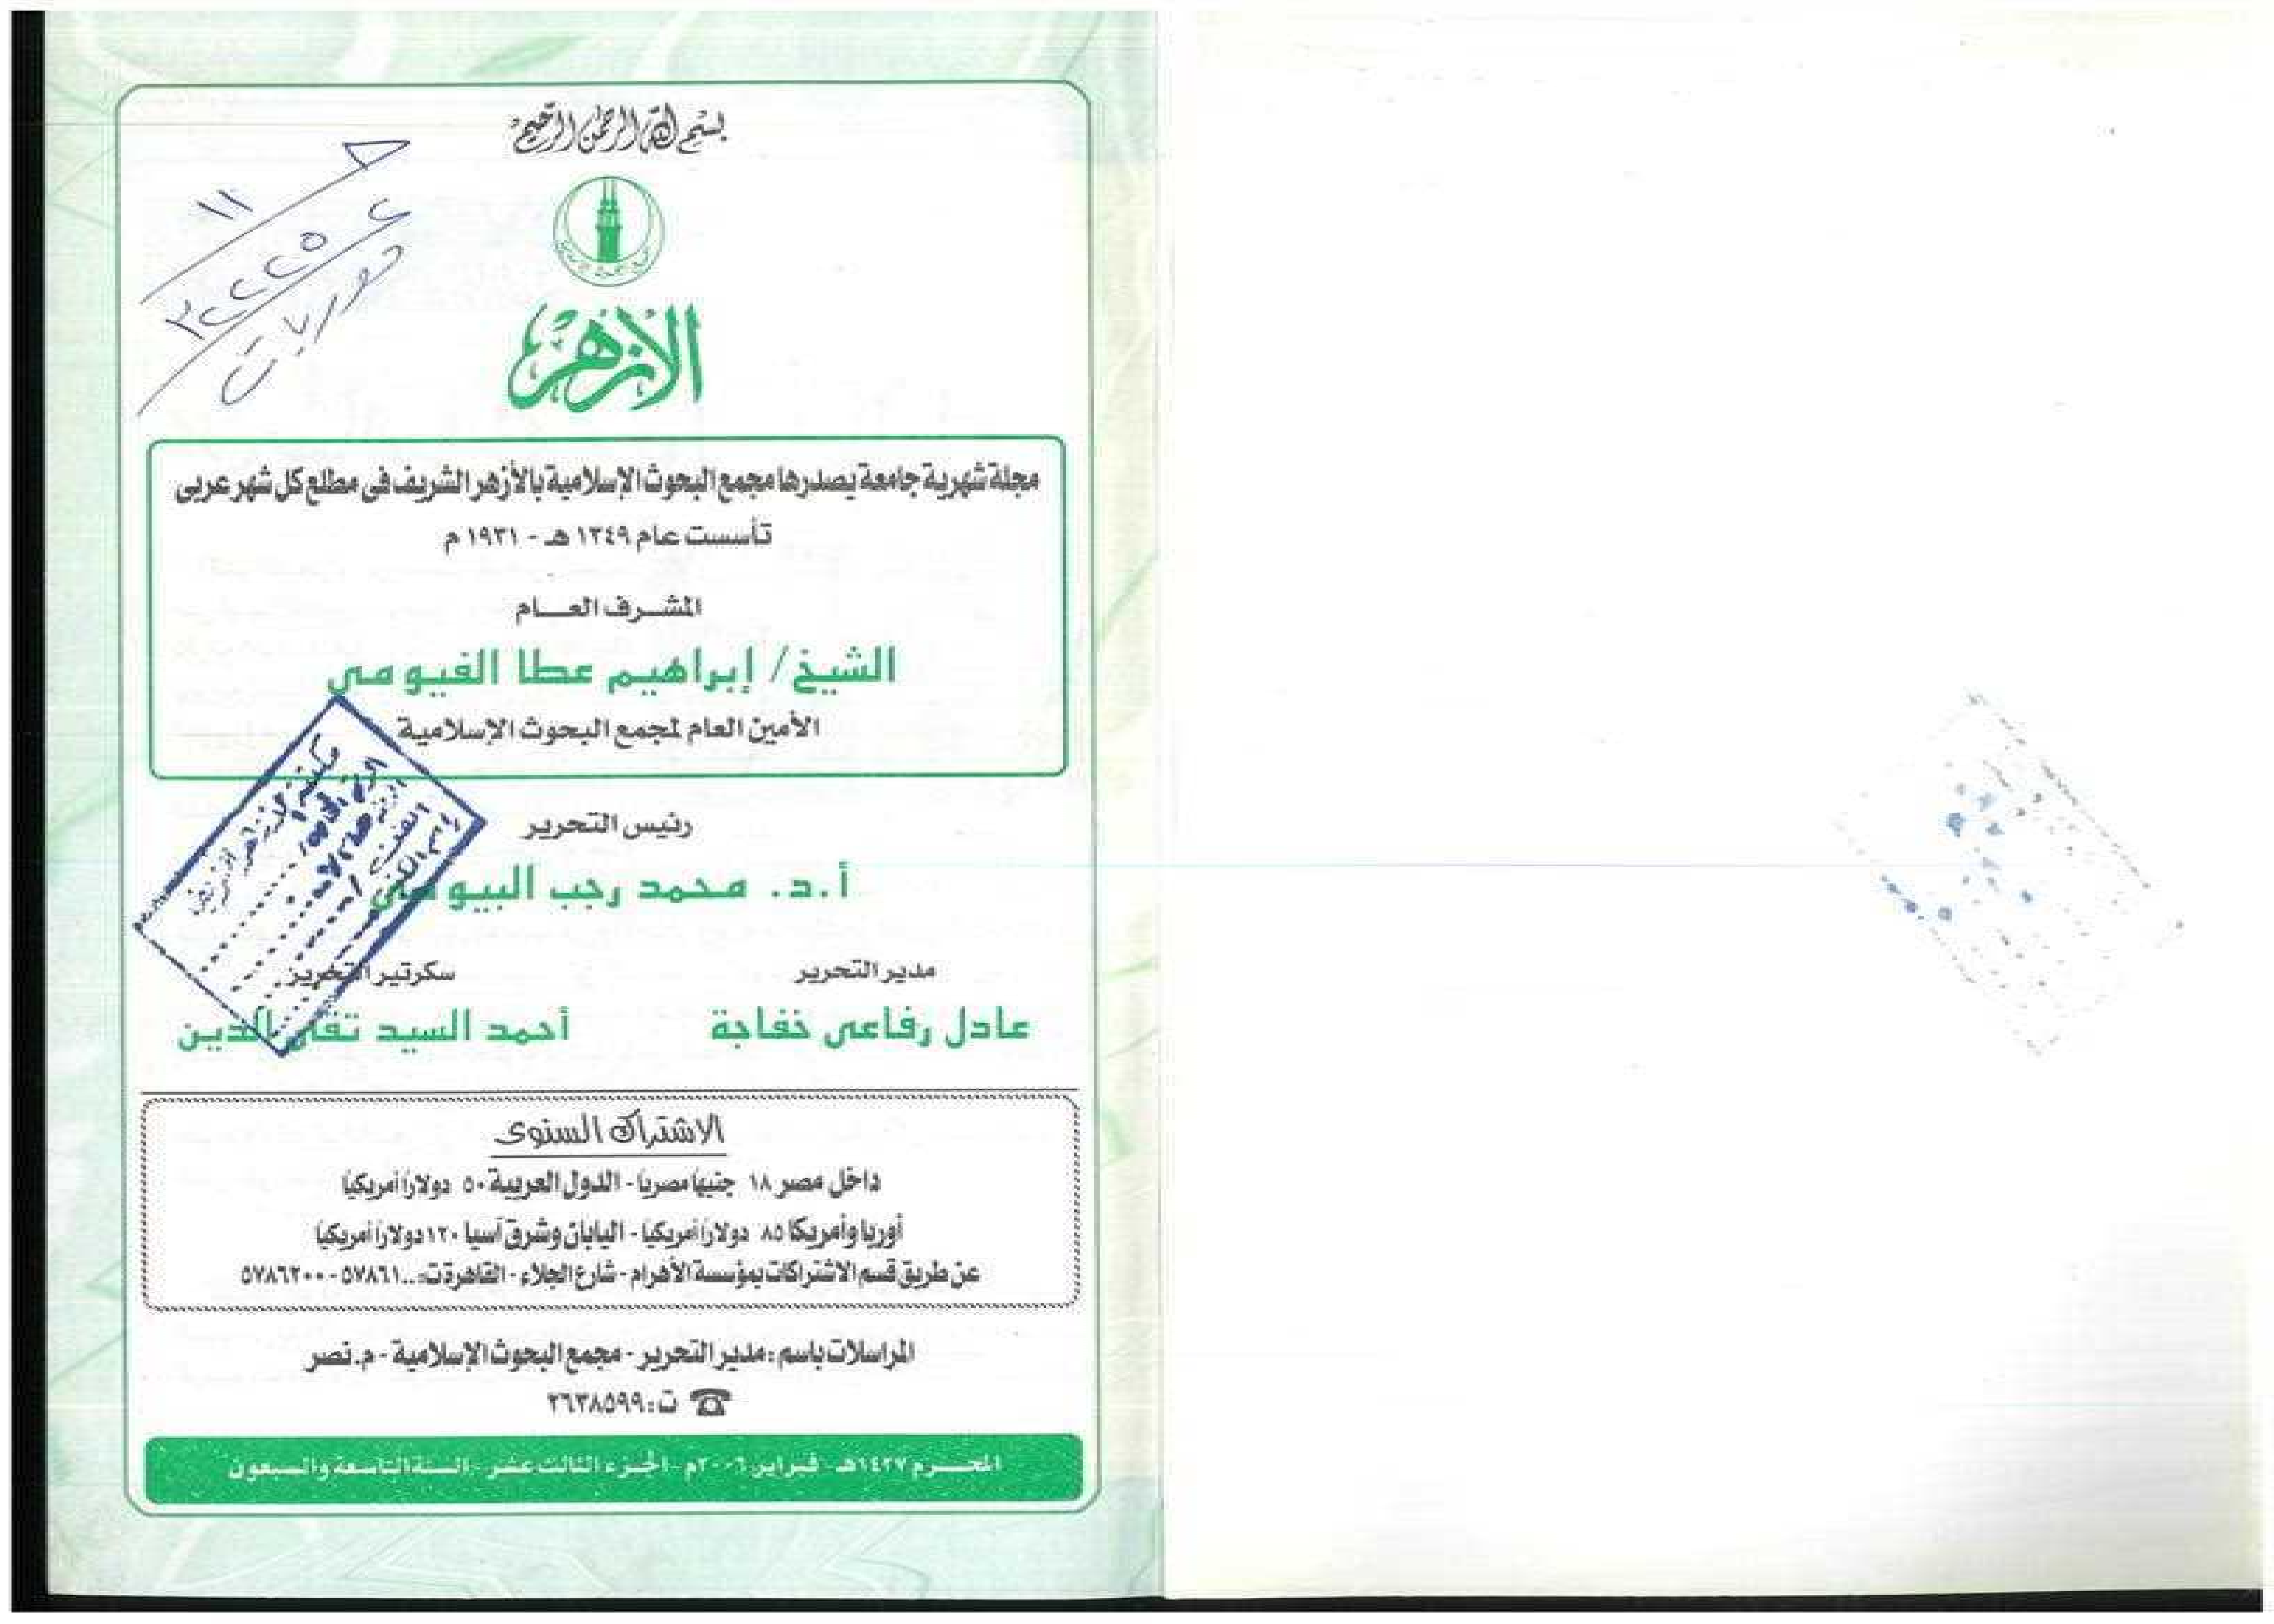 بسم الله الرحمن الرحيم
الأزهر
مجلة شهرية جامعة يصدرها مجمع البحوث الإسلامية بالأزهر الشريف فى مطلع كل شهر عربى
تأسست عام ١٣٤٩ هـ - ١٩٣١ م
المشرف العام
الشيخ/ إبراهيم عطا الفيومى
الأمين العام لمجمع البحوث الإسلامية
رئيس التحرير
أ.د. محمد رجب البيومى
مدير التحرير
عادل رفاعى خفاجة
سكرتير التحرير
أحمد السيد تقى الدين
الاشتراك السنوى
داخل مصر ١٨ جنيها مصريا - الدول العربية ٥٠ دولارا أمريكيا
أوربا وأمريكا ٨٥ دولارا أمريكيا - اليابان وشرق آسيا ١٢٠ دولارا أمريكيا
عن طريق قسم الاشتراكات بمؤسسة الأهرام - شارع الجلاء - القاهرة ت:
المراسلات باسم : مدير التحرير - مجمع البحوث الإسلامية - م. نصر
ت: ٢٦٣٨٥٩٩
المحرم ١٤٢٧هـ - فبراير ٢٠٠٦م - الجزء الثالث عشر - السنة التاسعة والسبعون
١١
٢٢٢٢٥
دوريات